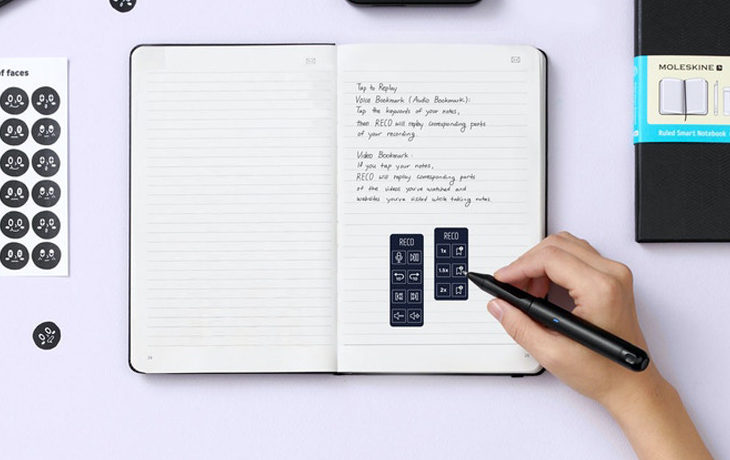 of faces
Tap to Replay
Voice Bookmark (Audio Bookmark):
Tap the keywords of your notes,
then RECO will replay corresponding parts
of your recording.
Video Bookmark:
If you tap your notes,
RECO will replay corresponding parts
of the videos you've watched and
websites you've listed while taking notes.
RECO
RECO
1x
1.5x
2x
MOLESKINE
Ruled Smart Notebook